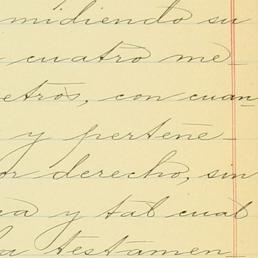 midiendo su
cuatro me-
etros, con cuan
y pertene-
or derecho, sin
y tal cual
la testamen-